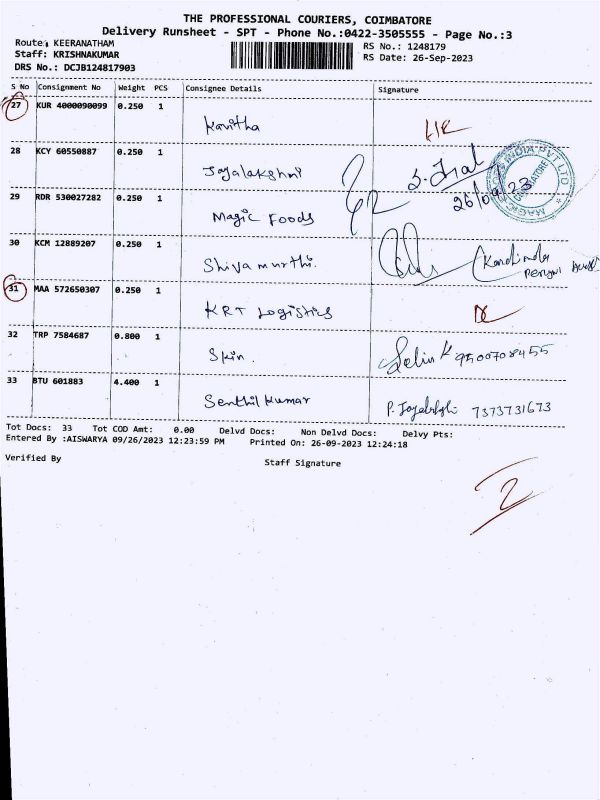 THE PROFESSIONAL COURIERS, COIMBATORE
Delivery Runsheet - SPT - Phone No.:0422-3505555 - Page No.:3
Route: KEERANATHAM
Staff: KRISHNAKUMAR
DRS No.: DCJB124817903
RS No.: 1248179
RS Date: 26-Sep-2023
S No Consignment No Weight PCS Consignee Details Signature
27 KUR 4000090099 0.250 1
Kavitha
28 KCY 60550887 0.250 1
Jayalakshmi
29 RDR 530027282 0.250 1
Magic Foods
26/09/23
MAGIC INDIA PVT LTD
COIMBATORE
30 KCM 12889207 0.250 1
Shiva murthi.
31 MAA 572650307 0.250 1
KRT Logistics
DC
32 TRP 7584687 0.800 1
Skin.
33 BTU 601883 4.400 1
Senthil kumar
7373731673
Tot Docs: 33 Tot COD Amt: 0.00 Delvd Docs: Non Delvd Docs: Delvy Pts:
Entered By :AISWARYA 09/26/2023 12:23:59 PM Printed On: 26-09-2023 12:24:18
Verified By Staff Signature
2